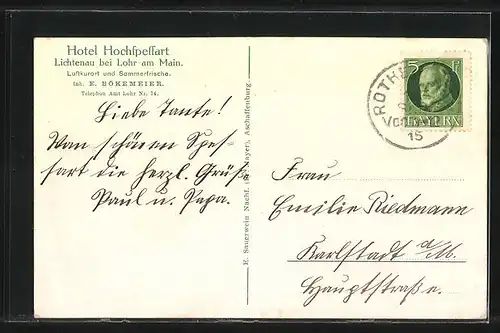 Hotel Hochspessart
Lichtenau bei Lohr am Main.
Luftkurort und Sommerfrische.
Inh. E. BÖKEMEIER.
Telephon Amt Lohr Nr. 74.
Liebe Tante!
Vom schönen Spes-
sart die herzl. Grüße
Paul u. Papa.
E. Saugrwein Nachf. Aschaffenburg
5 PF
BAYERN
ROTHE
15
Frau
Emilie Riedmann
Karlstadt a/M.
Hauptstraße.